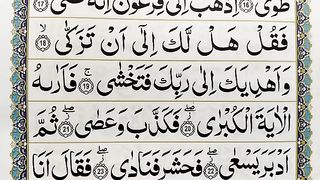 طُوًى ﴿۱۶﴾ اِذْهَبْ اِلٰى فِرْعَوْنَ اِنَّهٗ طَغٰى ﴿۱۷﴾
فَقُلْ هَلْ لَّكَ اِلٰٓى اَنْ تَزَكّٰى ﴿۱۸﴾
وَاَهْدِيَكَ اِلٰى رَبِّكَ فَتَخْشٰى ﴿۱۹﴾ فَاَرٰىهُ
الْاٰيَةَ الْكُبْرٰى ﴿۲۰﴾ فَكَذَّبَ وَعَصٰى ﴿۲۱﴾ ثُمَّ
اَدْبَرَ يَسْعٰى ﴿۲۲﴾ فَحَشَرَ فَنَادٰى ﴿۲۳﴾ فَقَالَ اَنَا